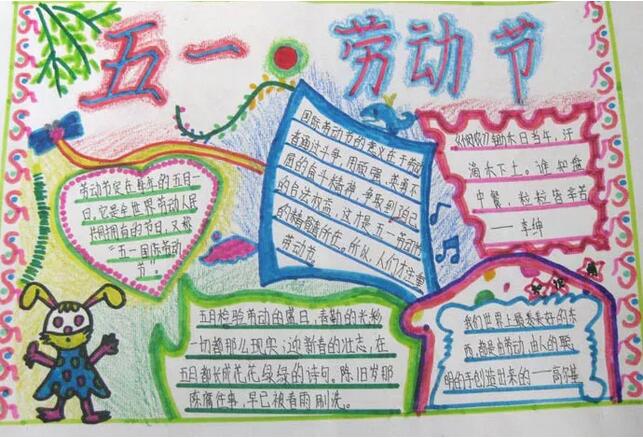 五一
劳动节
劳动节定在每年的五月一
日，它是全世界劳动人民
共同拥有的节日，又被
“五一国际劳动
节”
国际劳动节的意义在于劳动
者通过斗争，用顽强、英勇不
屈的奋斗精神，争取到自己
的合法权益，这才是五一劳动节
的精髓所在。所以，人们才注重
劳动节。
《悯农》锄禾日当午，汗
滴禾下土。谁知盘
中餐，粒粒皆辛苦
——李绅
五月检验劳动的盛日，春勤的光彩
一切都那么现实；迎新春的壮志，在
五月都长成花花绿绿的诗句。陈旧岁那
陈腐往事，早已被春雨刷洗。
我们世界上最美好的东
西，都是由劳动、由人的聪
明的手创造出来的——高尔基